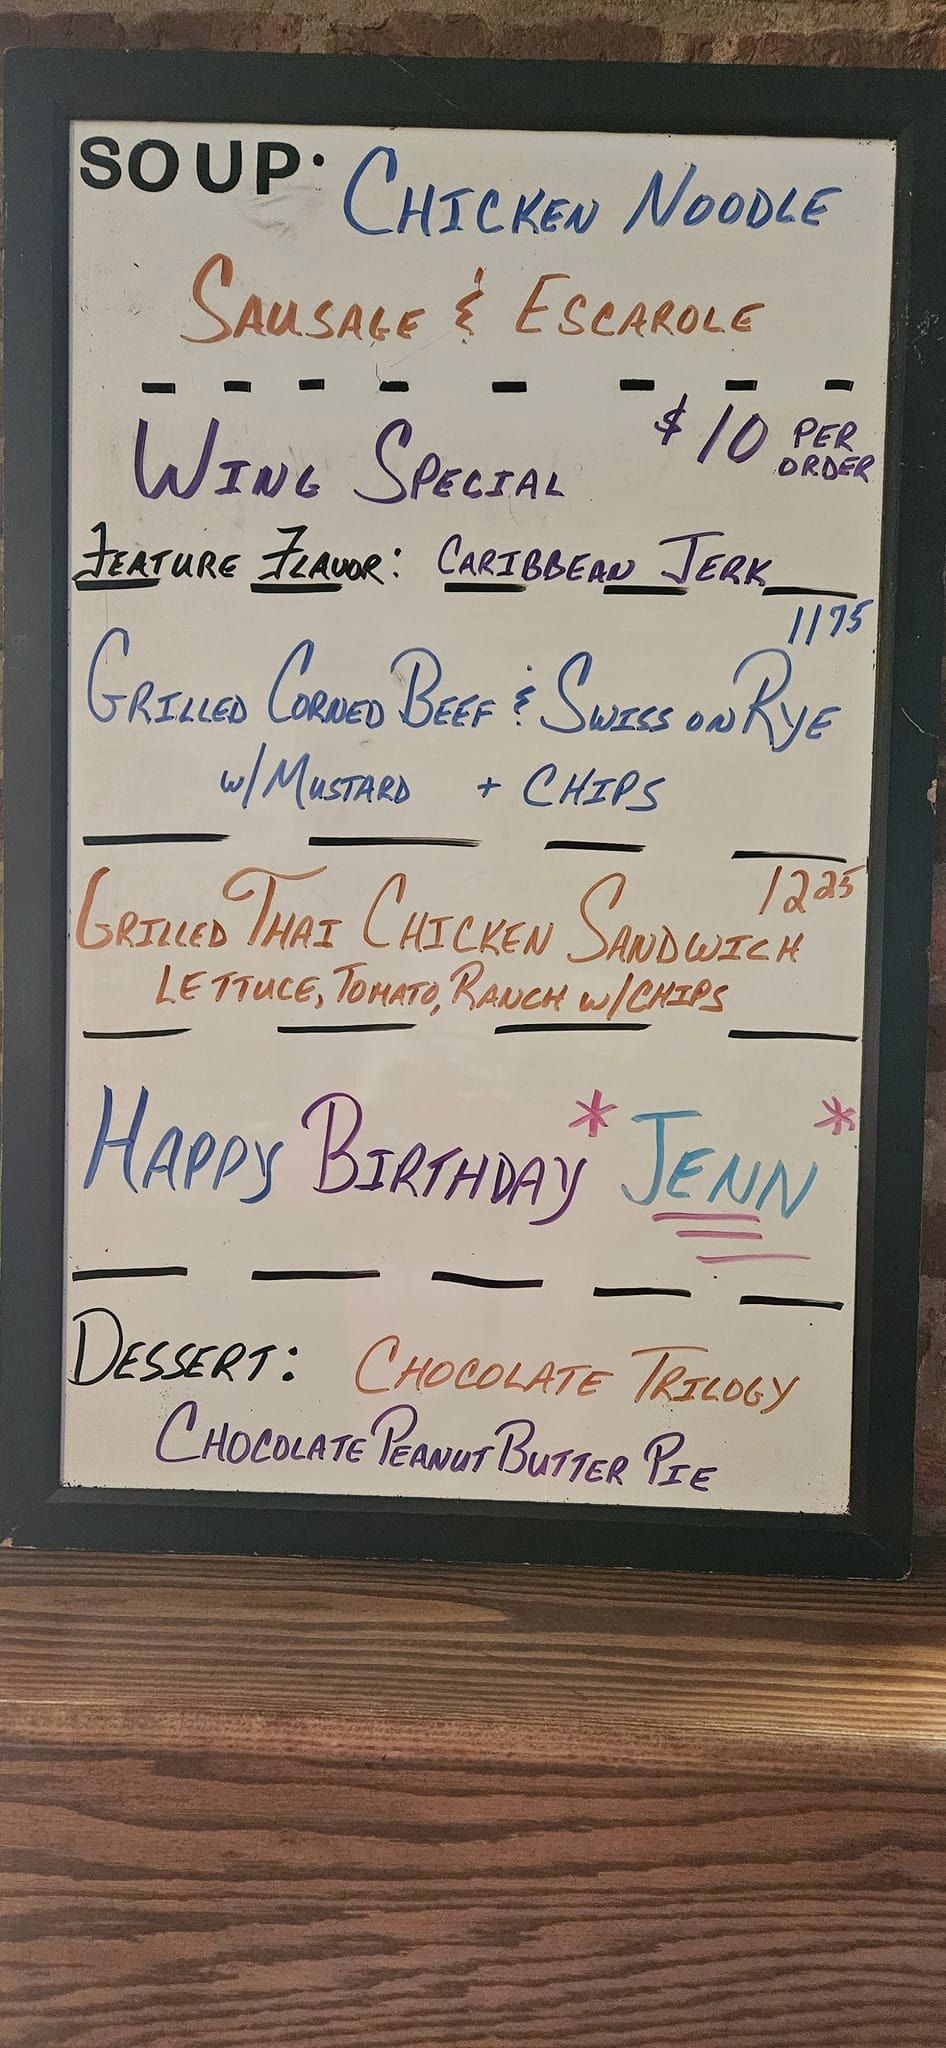 SOUP: CHICKEN NOODLE
SAUSAGE & ESCAROLE
WING SPECIAL $10 PER ORDER
FEATURE FLAVOR: CARIBBEAN JERK
1175
GRILLED CORNED BEEF & SWISS ON RYE
W/MUSTARD + CHIPS
1225
GRILLED THAI CHICKEN SANDWICH
LETTUCE, TOMATO, RANCH W/CHIPS
HAPPY BIRTHDAY * JENN *
DESSERT: CHOCOLATE TRILOGY
CHOCOLATE PEANUT BUTTER PIE